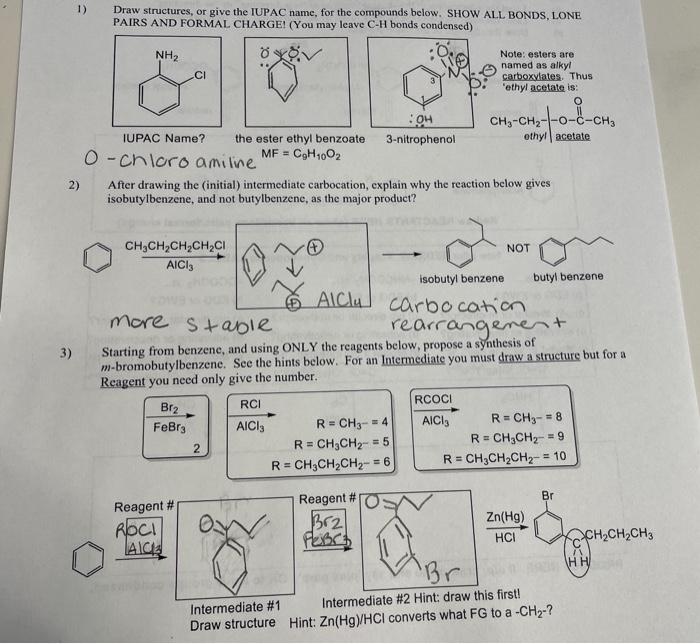 1) Draw structures, or give the IUPAC name, for the compounds below. SHOW ALL BONDS, LONE
PAIRS AND FORMAL CHARGE! (You may leave C-H bonds condensed)
NH2
Cl
O O
:O: N O:
3
1
:OH
Note: esters are
named as alkyl
carboxylates. Thus
'ethyl acetate is:
O
CH3-CH2-O-C-CH3
ethyl acetate
IUPAC Name?
the ester ethyl benzoate
MF = C9H10O2
3-nitrophenol
O-chloro amiline
2) After drawing the (initial) intermediate carbocation, explain why the reaction below gives
isobutylbenzene, and not butylbenzene, as the major product?
CH3CH2CH2CH2Cl
AlCl3
+
+
AlCl4
NOT
isobutyl benzene
butyl benzene
more stable
carbocation
rearrangement
3) Starting from benzene, and using ONLY the reagents below, propose a synthesis of
m-bromobutylbenzene. See the hints below. For an Intermediate you must draw a structure but for a
Reagent you need only give the number.
Br2
FeBr3
2
RCl
AlCl3
R = CH3- = 4
R = CH3CH2- = 5
R = CH3CH2CH2- = 6
RCOCl
AlCl3
R = CH3- = 8
R = CH3CH2- = 9
R = CH3CH2CH2- = 10
Reagent #
ROCl
AlCl3
O
Reagent #
Br2
FeBr3
O
Br
Zn(Hg)
HCl
Br
C CH2CH2CH3
H H
Intermediate #1
Draw structure
Intermediate #2 Hint: draw this first!
Hint: Zn(Hg)/HCl converts what FG to a -CH2-?